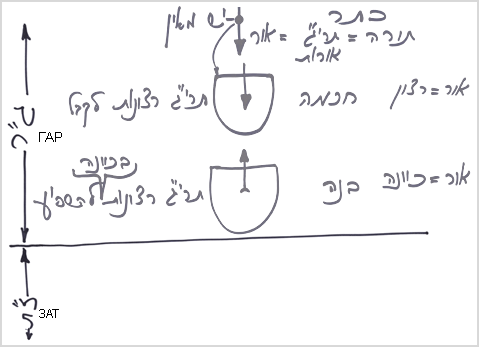 כתר
יש מאין
תורה = תרי"ג אורות = אור
חכמה תרי"ג רצונות לקבל
אור = רצון
בכוונה
בנה תרי"ג רצונות להשפיע
אור = כוונה
ג"ר
ГАР
ז"ת
ЗАТ